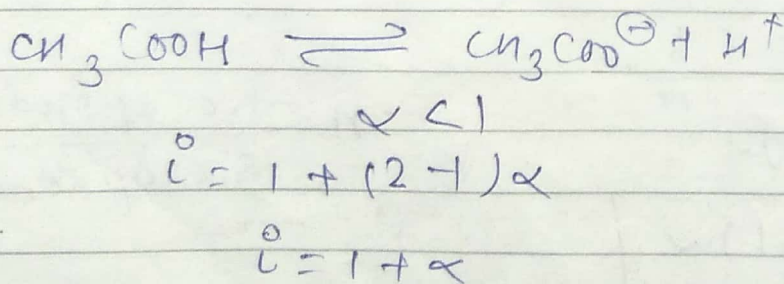 CH₃COOH ⇌ CH₃COO⊖ + H⁺
α < 1
i = 1 + (2 - 1)α
i = 1 + α